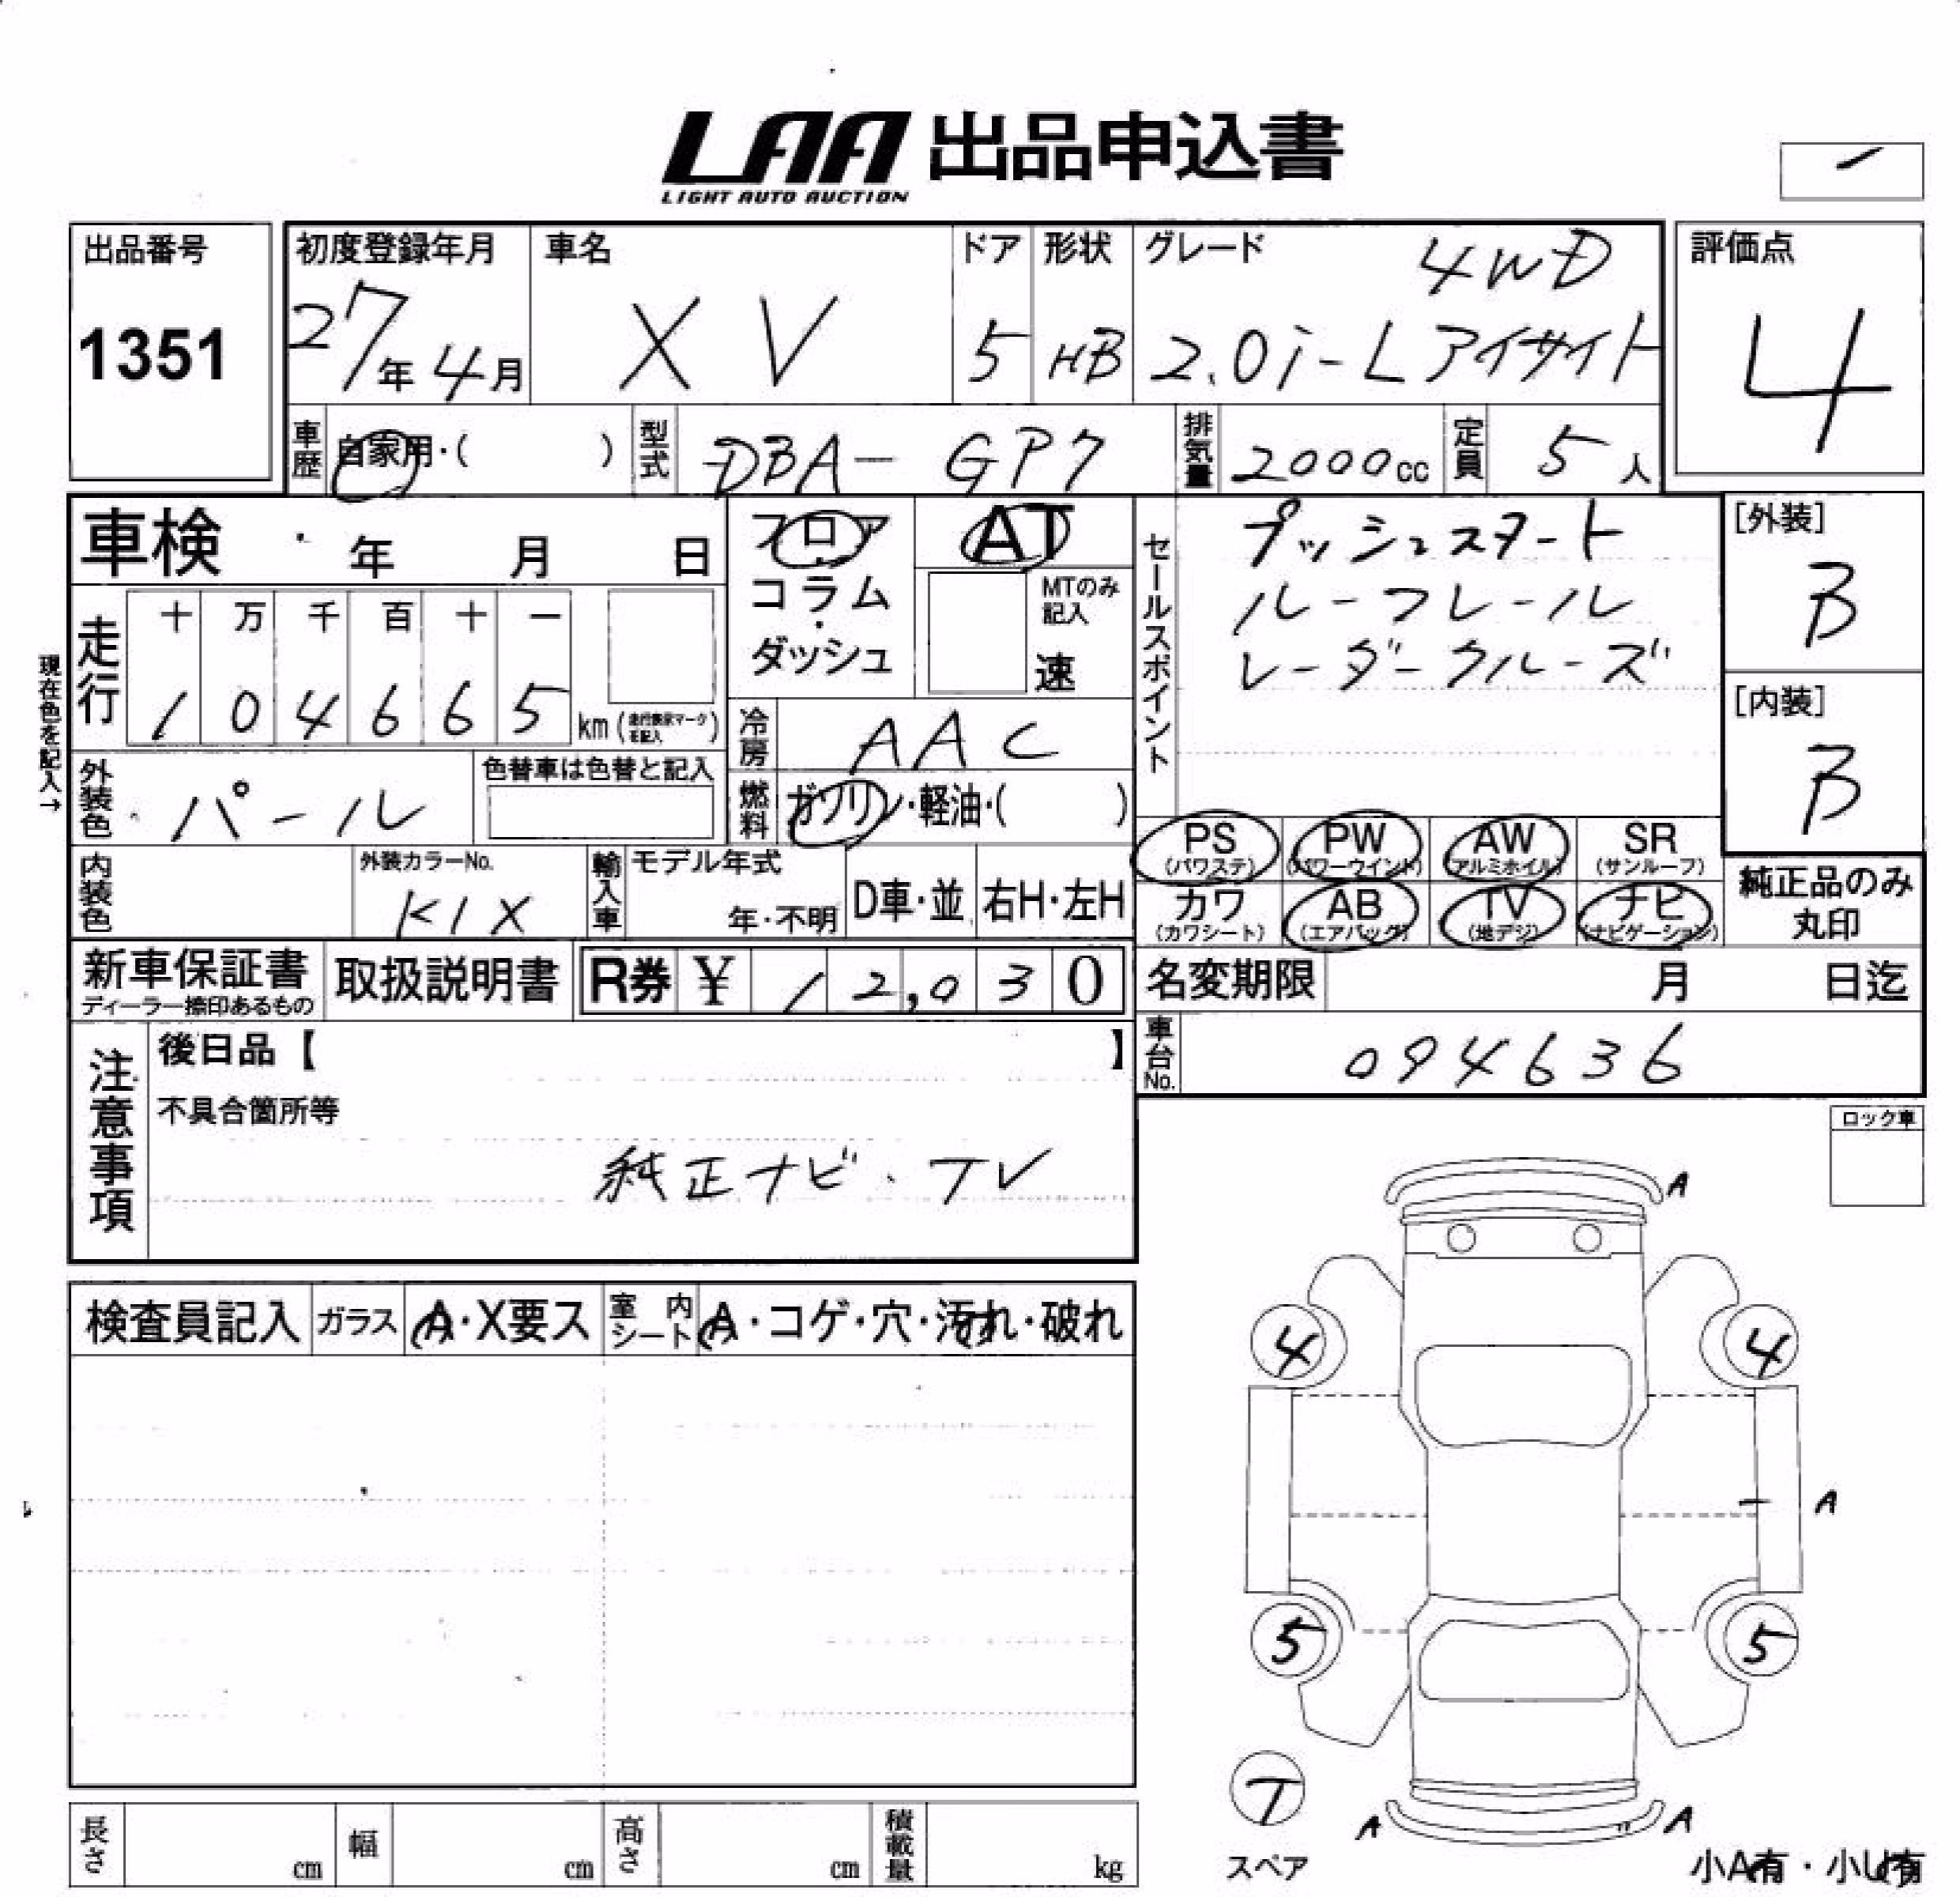 LAA 出品申込書
LIGHT AUTO AUCTION
出品番号
1351
初度登録年月
27年4月
車名
XV
ドア
5
形状
HB
グレード
4WD
2.0i-Lアイサイト
評価点
4
車歴
自家用・( )
型式
DBA-GP7
排気量
2000cc
定員
5人
車検 年 月 日
フロア・コラム・ダッシュ
AT
MTのみ記入
速
セールスポイント
プッシュスタート
ルーフレール
レーダークルーズ
[外装]
B
[内装]
B
現在色を記入→
走行
十 万 千 百 十 一
1 0 4 6 6 5 km
冷房
AAC
外装色
パール
色替車は色替と記入
燃料
ガソリン・軽油・( )
PS (パワステ)
PW (パワーウインド)
AW (アルミホイル)
SR (サンルーフ)
カワ (カワシート)
AB (エアバッグ)
TV (地デジ)
ナビ (ナビゲーション)
純正品のみ
丸印
内装色
外装カラーNo.
K1X
輸入車
モデル年式
年・不明
D車・並
右H・左H
新車保証書
ディーラー捺印あるもの
取扱説明書
R券 ¥ 12,030
名変期限 月 日迄
車台No.
094636
注意事項
後日品【 】
不具合箇所等
純正ナビ・TV
ロック車
検査員記入
ガラス
A・X要ス
室内シート
A・コゲ・穴・汚れ・破れ
A
4 4
A
5 5
T
スペア
A A
小A有・小U有
長さ cm
幅 cm
高さ cm
積載量 kg